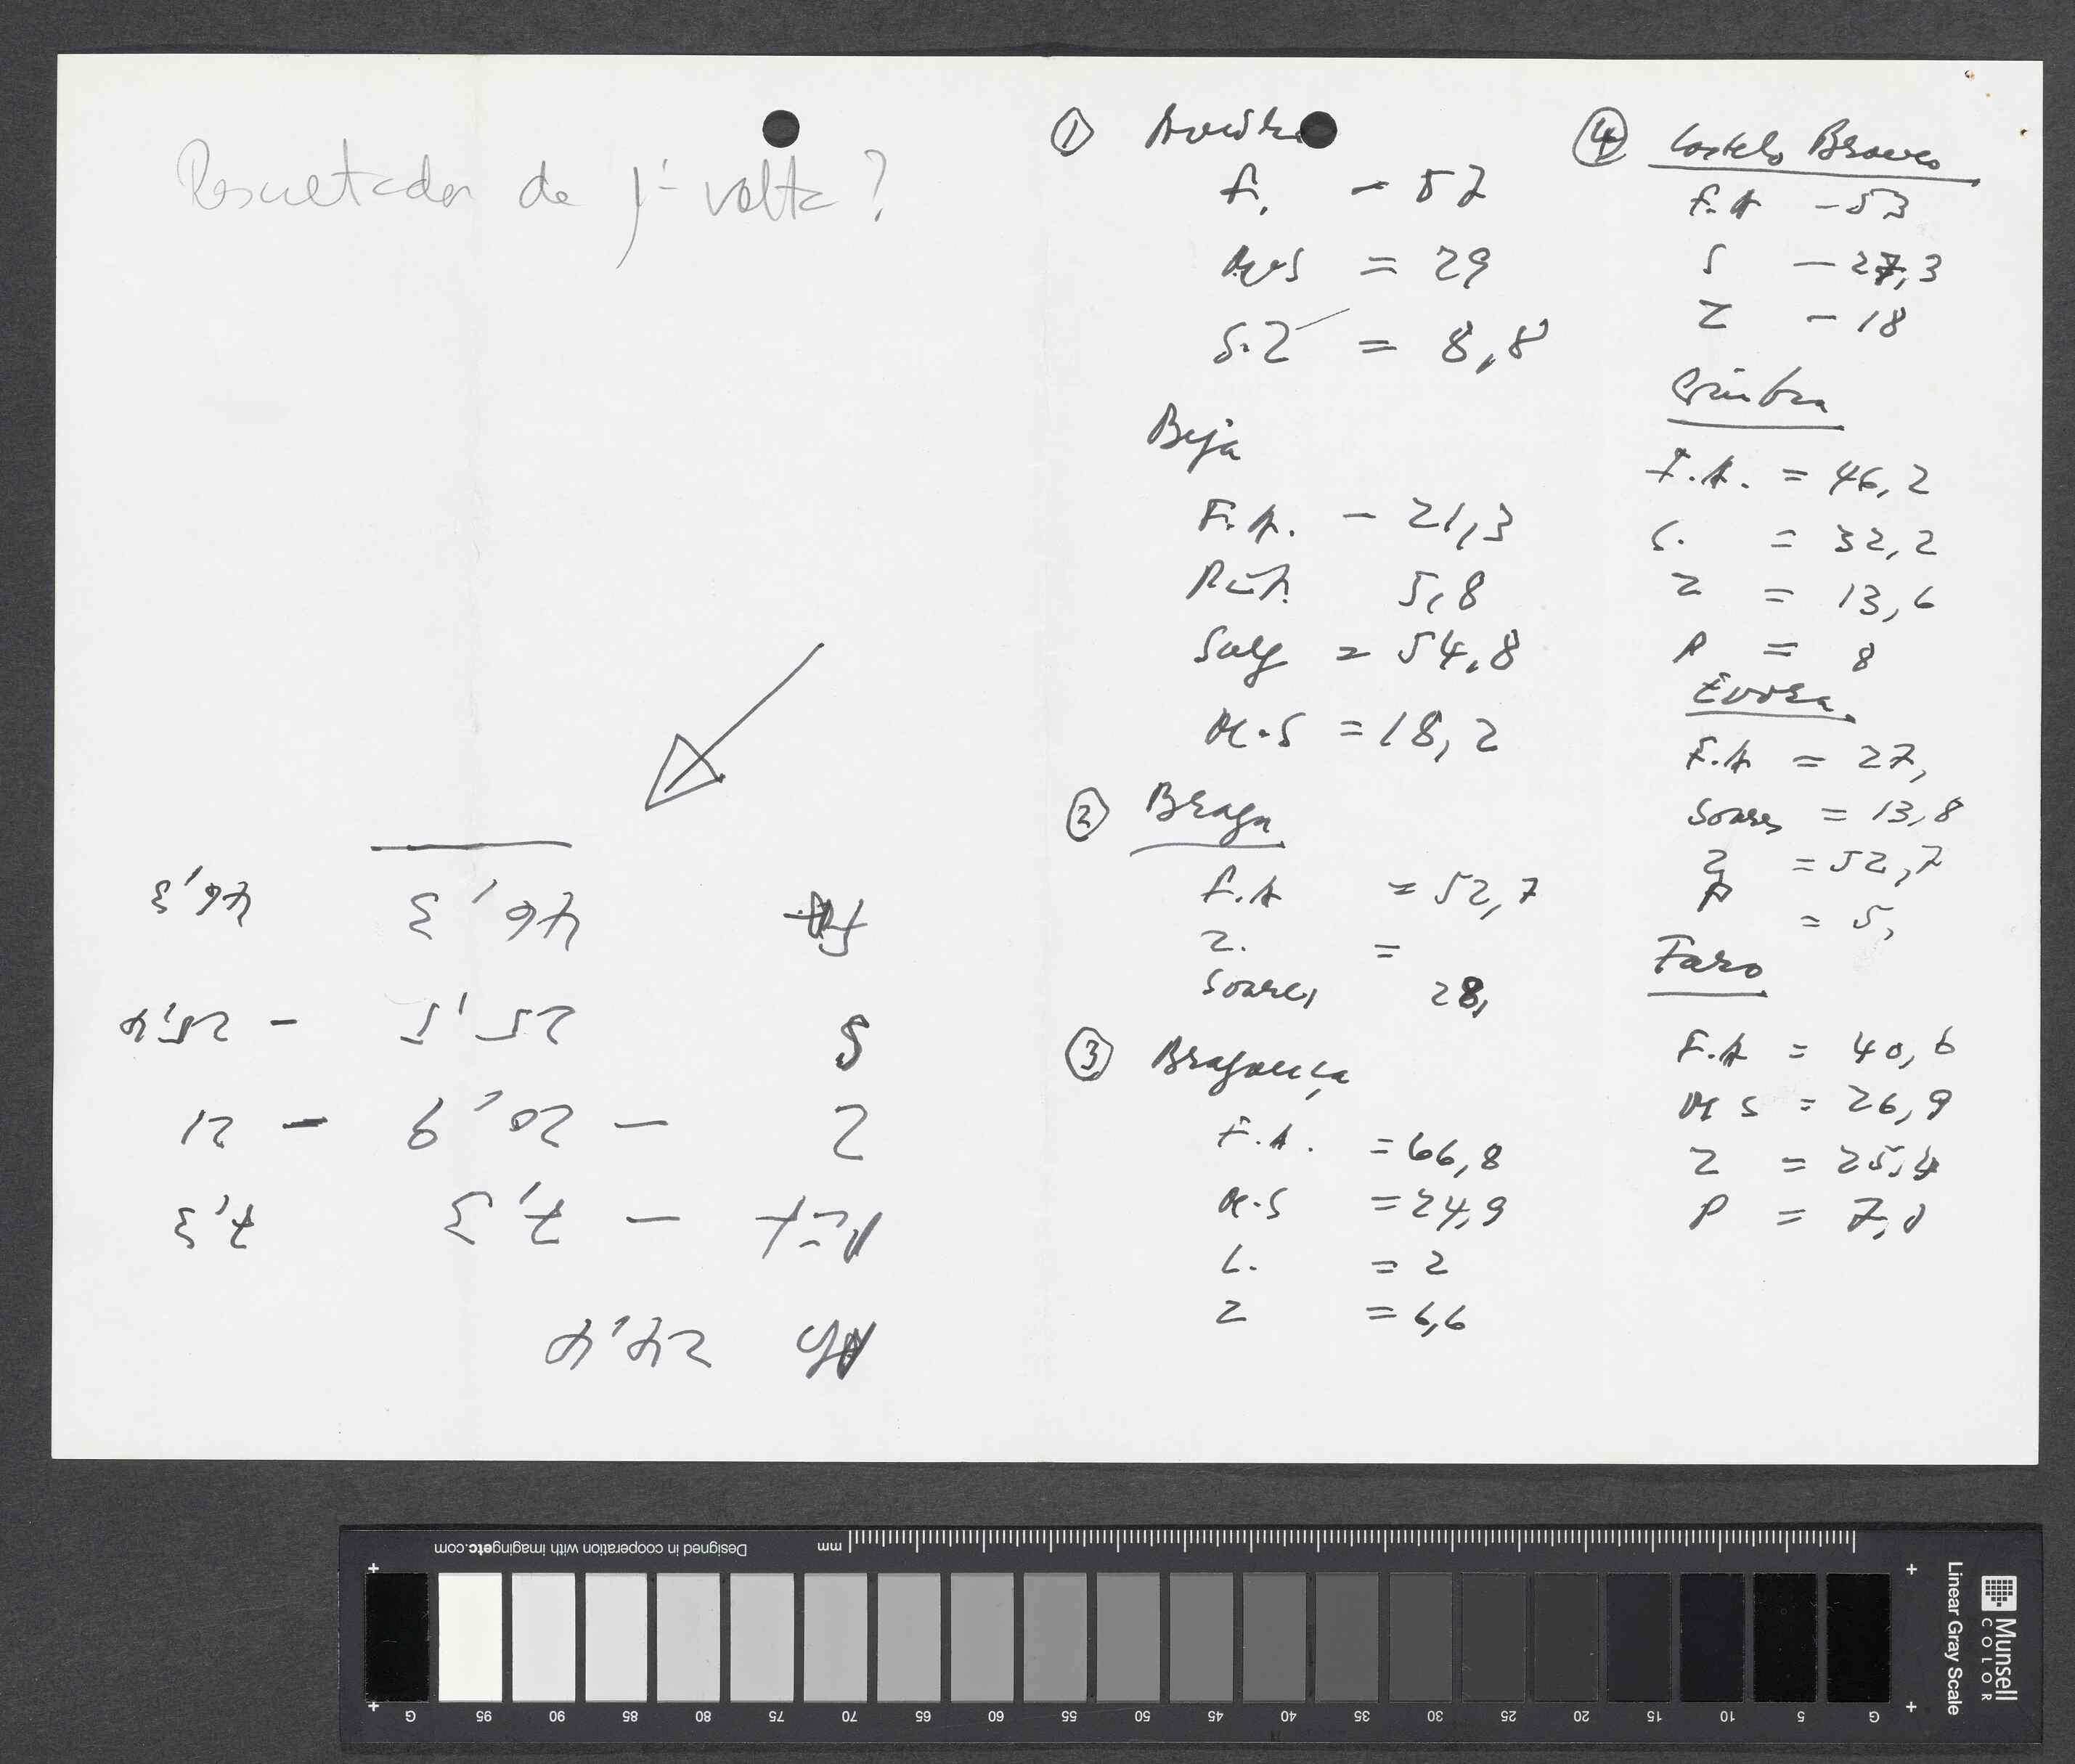 Resultados da 1ª volta?
FA 46,3 46,3
S 25,5 - 25,4
Z - 20,9 - 21
Pint - 7,3 7,3
24,4
① Aveiro
F. - 57
M.S = 29
S.Z = 8,8
Beja
F.A. - 21,3
Pint. 5,8
Salg = 54,8
M.S = 18,2
② Braga
F.A = 52,7
Z. =
Soares 28,
③ Bragança
F.A. = 66,8
M.S = 24,9
L. = 2
Z = 6,6
④ Castelo Branco
F.A - 53
S - 27,3
Z - 18
Coimbra
F.A. = 46,2
S. = 32,2
Z = 13,6
P = 8
Évora
F.A = 27,
Soares = 13,8
Z = 52,7
P = 5,
Faro
F.A = 40,6
M S = 26,9
Z = 25,4
P = 7,1
Designed in cooperation with imagingetc.com
mm
Munsell
COLOR
Linear Gray Scale
G 95 90 85 80 75 70 65 60 55 50 45 40 35 30 25 20 15 10 5 G